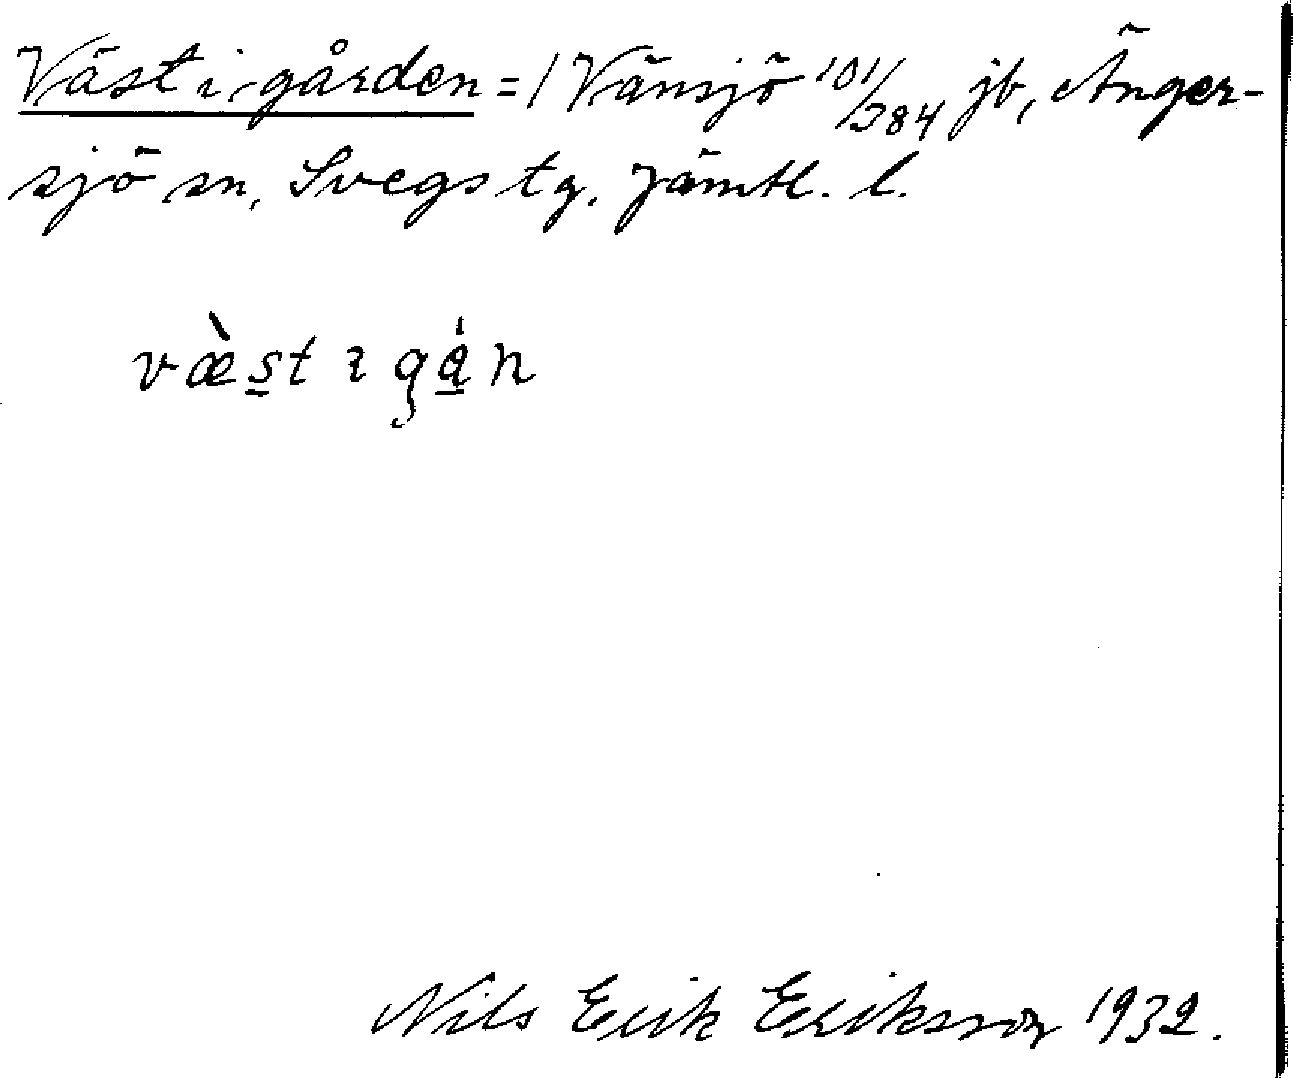 Väst i gården = 1 Vänsjö 101/384 jb, Änger-
sjö sn, Svegs tg. Jämtl. l.
væ̀s̱t ı gǻ̱n
Nils Erik Eriksson 1932.